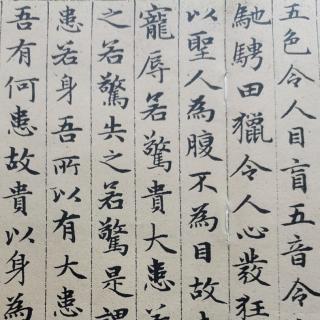 五色令人目盲五音令
馳騁田獵令人心發狂
以聖人為腹不為目故
寵辱若驚貴大患若
之若驚失之若驚是謂
患若身吾所以有大患
吾有何患故貴以身為